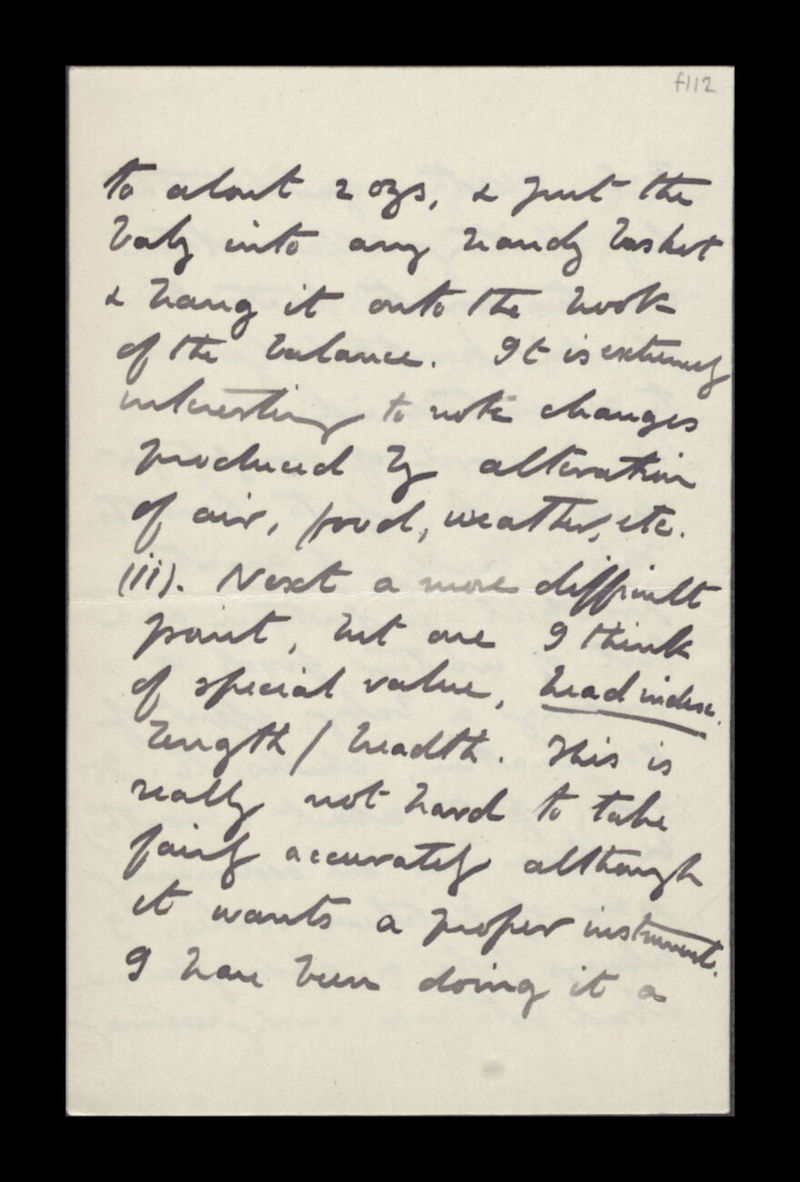 f112
to about 2 ozs, & put the
baby into any handy basket
& hang it onto the hook
of the balance. It is extremely
interesting to note changes
produced by alteration
of air, food, weather, etc.
(ii). Next a more difficult
point, but one I think
of special value, head index.
length/breadth. This is
really not hard to take
fairly accurately although
it wants a proper instrument.
I have been doing it a